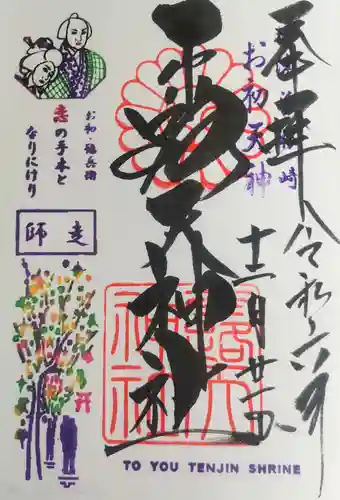 奉拝
令和六年
十二月廿
お初天神
露天神社
露天
神社
お初・徳兵衛
恋の手本と
なりにけり
師走
TO YOU TENJIN SHRINE